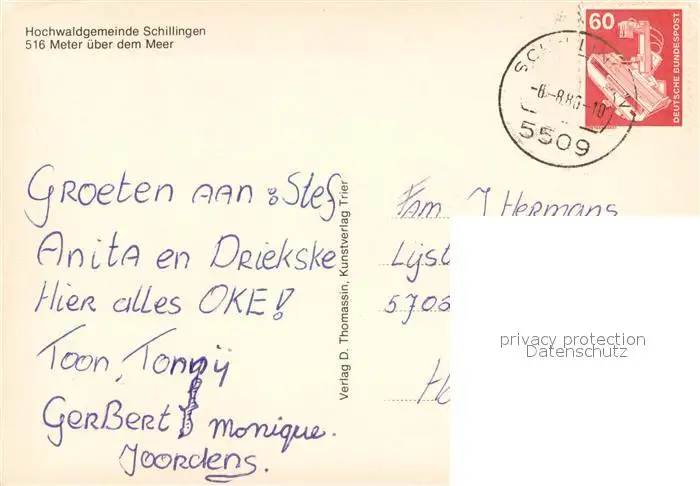 Hochwaldgemeinde Schillingen
516 Meter über dem Meer
60
DEUTSCHE BUNDESPOST
5509
GROETEN AAN : Stef
Anita en Driekske
Hier alles OKE!
Toon, Tonny
GerBert Monique.
Joordens.
Verlag D. Thomassin, Kunstverlag Trier
Fam J Hermans
Lijst
5706
privacy protection
Datenschutz